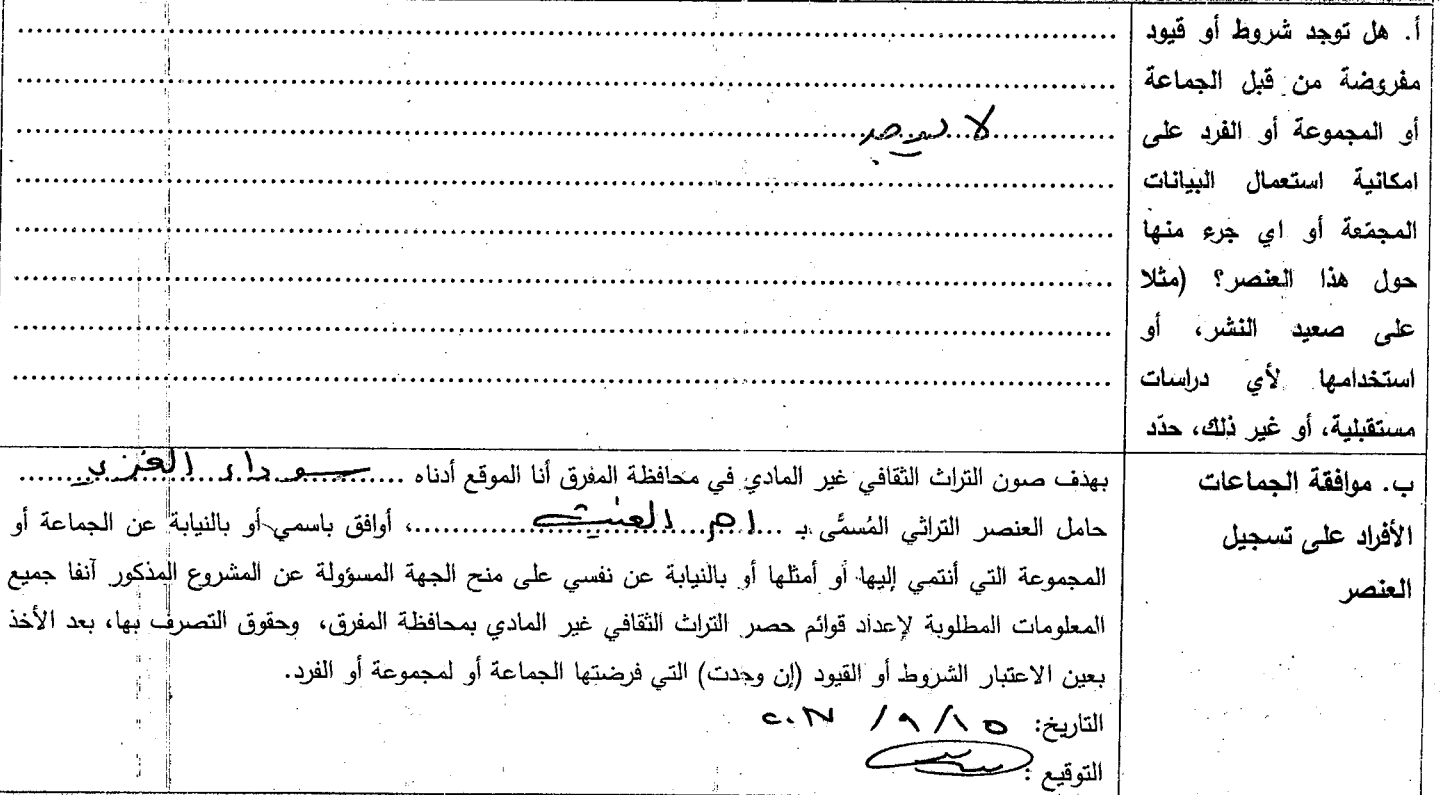 أ. هل توجد شروط أو قيود
مفروضة من قبل الجماعة
أو المجموعة أو الفرد على
امكانية استعمال البيانات
المجمّعة أو اي جرء منها
حول هذا العنصر؟ (مثلا
على صعيد النشر، أو
استخدامها لأي دراسات
مستقبلية، أو غير ذلك، حدّد
لا يوجد
ب. موافقة الجماعات
الأفراد على تسجيل
العنصر
بهدف صون التراث الثقافي غير المادي في محافظة المفرق أنا الموقع أدناه
حامل العنصر التراثي المُسمَّى بـ ام الغيث، أوافق باسمي أو بالنيابة عن الجماعة أو
المجموعة التي أنتمي إليها أو أمثلها أو بالنيابة عن نفسي على منح الجهة المسؤولة عن المشروع المذكور آنفا جميع
المعلومات المطلوبة لإعداد قوائم حصر التراث الثقافي غير المادي بمحافظة المفرق، وحقوق التصرف بها، بعد الأخذ
بعين الاعتبار الشروط أو القيود (إن وجدت) التي فرضتها الجماعة أو لمجموعة أو الفرد.
التاريخ: ١٥/ ٩ /
التوقيع :